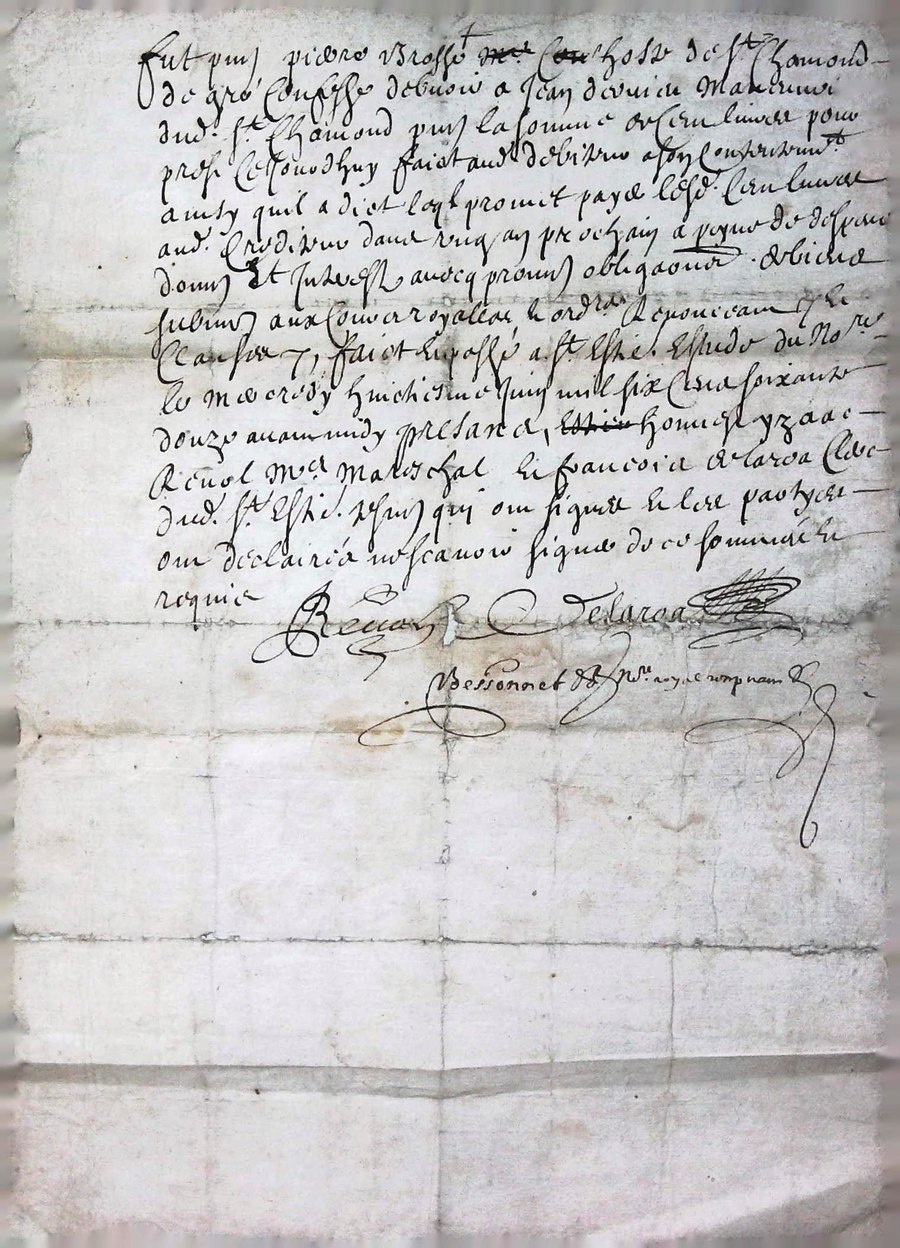 Fut pnt pierre Brossé hoste de St Chamond
de gré Confesse debvoir a Jean dervieu
dud. St Chamond pnt la somme de Cen livres pour
prest Cejourdhuy faict aud debiteur a son Contentemt
ainsy quil a dict leql promet payer lesd. Cen livres
aud. Crediteur dans ung an prochain a peyne de despens
domm Et Interest avecq promes obligaons de biens
submis aux Cours royalles et ordres Renonceam et
Clauses faict et passé a St Estie. Estude du Nore
le mecredy huictiesme Juin mil six Cens soixante
douze avant midy presans, honneste yzaac
Renol Me Mareschal et francois delaroa Clerc
dud. St Estie. tesm qui ont signes et les partyes
ont declairés ne scavoir signer de ce sommés et
requis
Renol Delaroa
Bessonnet nre royal